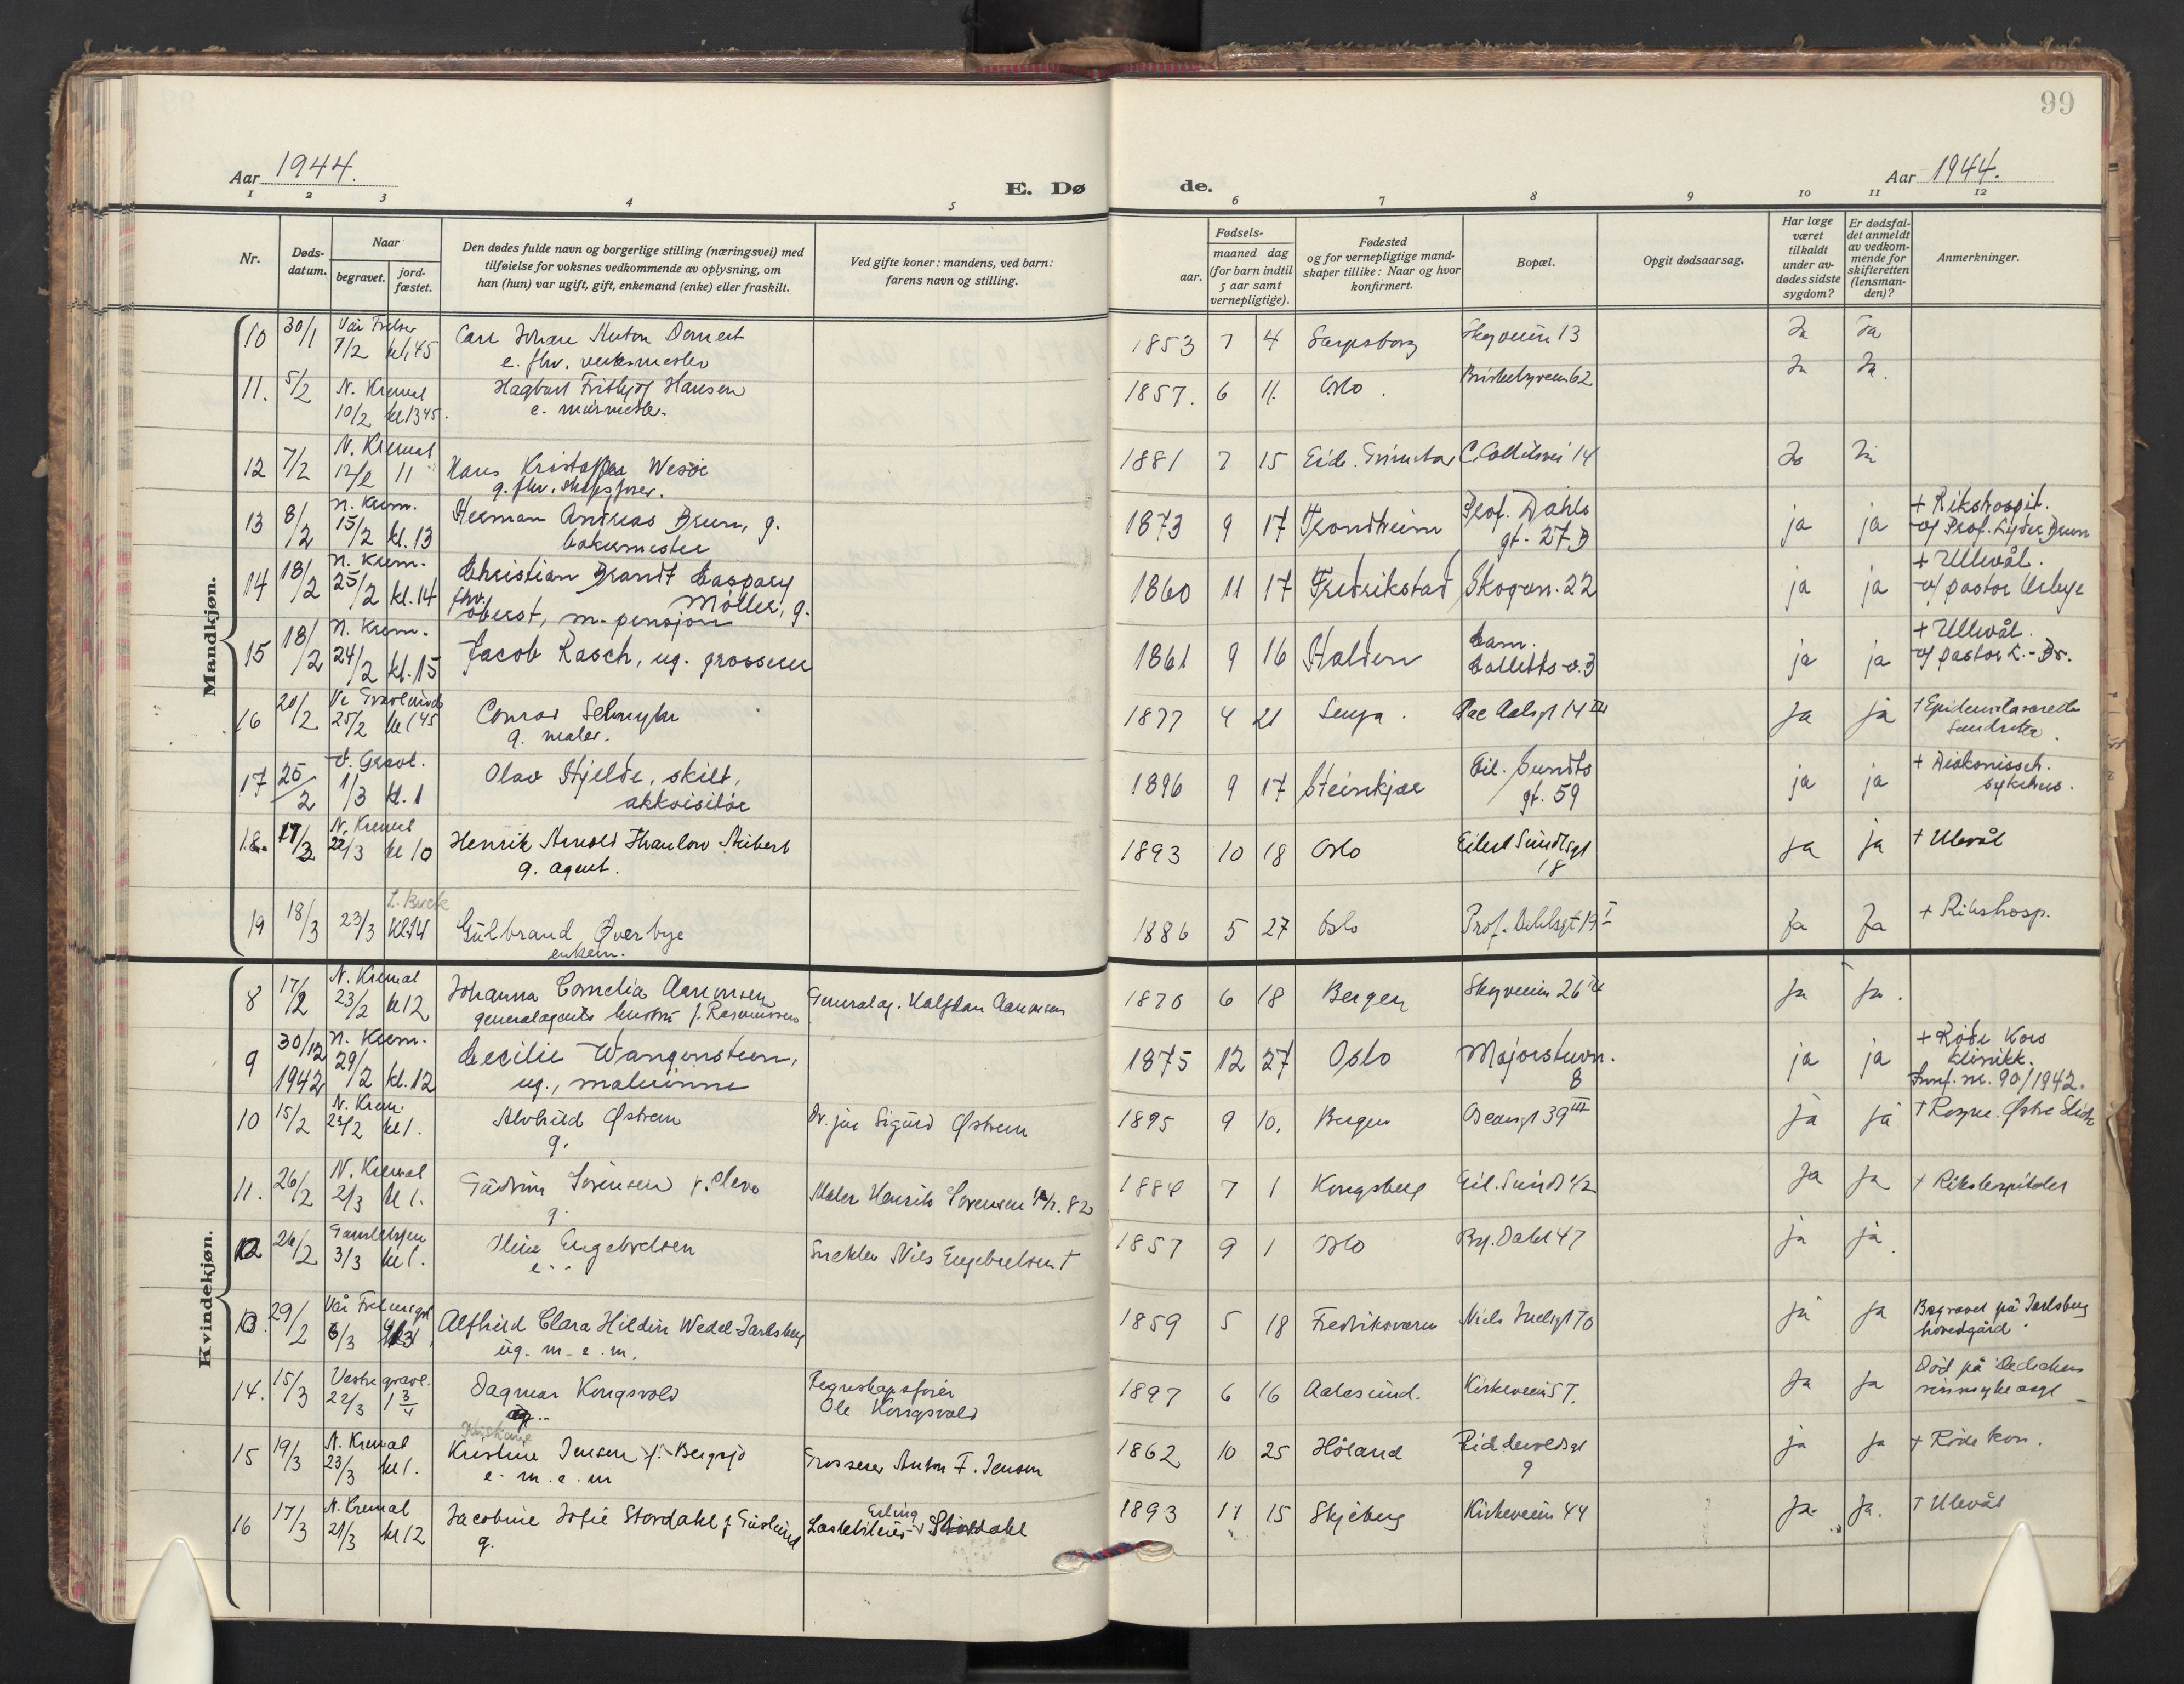 99
Aar 1944.
E. Dø de.
Aar 1944.
1 2 3 4 5 6 7 8 9 10 11 12
Nr.
Døds-
datum.
Naar
begravet.
jord-
fæstet.
Den dødes fulde navn og borgerlige stilling (næringsvei) med
tilføielse for voksnes vedkommende av oplysning, om
han (hun) var ugift, gift, enkemand (enke) eller fraskilt.
Ved gifte koner: mandens, ved barn:
farens navn og stilling.
Fødsels-
aar.
maaned dag
(for barn indtil
5 aar samt
vernepligtige).
Fødested
og for vernepligtige mand-
skaper tillike: Naar og hvor
konfirmert.
Bopæl.
Opgit dødsaarsag.
Har læge
været
tilkaldt
under av-
dødes sidste
sygdom?
Er dødsfal-
det anmeldt
av vedkom-
mende for
skifteretten
(lensman-
den)?
Anmerkninger.
Mandkjøn.
10 30/1 Vår Frelser Carl Johan Anton 1853 7 4 Sarpsborg Skogveien 13 Ja Ja
7/2 kl 1,45 e. fhv. verksmester
11. 5/2 N. Kremat Hagbart Frithjof Hansen 1857. 6 11. Oslo. Briskebyveien 62 Ja Ja.
10/2 kl 13 45. e. murmester.
12 7/2 N. Kremat Hans Kristoffer Wesøe 1881 7 15 Eide. Grimstad C. Collettsvei 14 Ja Ja
12/2 11 g. fhv. skipsfører.
13 8/2 N. Krem. Herman Andreas Bruun, g. 1873 9 17 Trondheim Prof. Dahls ja ja + Rikshospit.
15/2 kl. 13 bakermester gt. 27B v/ Prof. Lyder Brun
14 18/2 N. Krem. Christian Brandt Caspary 1860 11 17 Fredrikstad Skogvn. 22 ja ja + Ullevål.
25/2 kl. 14 fhv. Møller, g. v/ pastor
oberst, m. pensjon
15 18/2 N. Krem. Jacob Rasch, ug. grosserer 1861 9 16 Halden Cam. ja ja + Ullevål.
24/2 kl. 15 Colletts v. 3 v/ pastor L.-Br.
16 20/2 Ve Gravlund Conrad 1877 4 21 Senja. 14 III Ja ja + Epidemilasarettet
25/2 kl 1 45 g. maler.
17 25/2 V. Gravl. Olav Hjelde, skilt, 1896 9 17 Steinkjær Eil. Sundts ja ja + Diakonisseh.
1/3 kl. 1 akkvisitør gt. 59 sykehus.
18. 17/3 N. Kremat Henrik Arnold Thaulow 1893 10 18 Oslo Eilert Sundtsgt ja ja + Ulevål
22/3 kl 10 g. agent. 18
19 18/3 23/3 Kl 14 Gulbrand Øverbye 1886 5 27 Oslo Prof. Dahlsgt 19 I Ja Ja + Rikshosp.
enkem.
Kvindekjøn.
8 17/2 N. Kremat Johanna Cornelia Aanonsen Generalag. Halfdan Aanonsen 1870 6 18 Bergen Skogveien 26 Ja Ja.
23/2 kl 12 generalagents hustru f. Rasmussen
9 30/12 N. Krem. Cecilie Wangensteen, 1875 12 27 Oslo Majorstuvn. ja ja + Røde Kors
1942 29/2 kl. 12 ug., malerinne 8 klinikk.
Jmf. nr. 90/1942.
10 15/2 N. Krem. Alvhild Østrem Dr. jur Sigurd Østrem 1895 9 10. Bergen Oscarsgt 39 III ja ja + Rogne. Østre Slidre
kl 1. g.
11. 26/2 N. Kremat Gudrun Sørensen f. Cleve Maler Henrik Sørensen 1884 7 1 Kongsberg Eil. Sundt 42 Ja Ja + Rikshospitalet
2/3 kl 1. g.
12 26/2 Gamlebyen Engebretsen Snekker Nils Engebretsen † 1857 9 1 Oslo Br. Dahl 47 ja ja.
3/3 kl 1. e.
13. 29/2 Vår Frelsersgrl Alfhild Clara Wedel-Jarlsberg 1859 5 18 Fredriksværn Niels Juelsgt 70 ja ja Begravet på Jarlsberg
6/3 ug. m. e. m. hovedgård.
14. 15/3 Vestre gravl. Dagmar Kongsvold Regnskapsfører 1897 6 16 Aalesund. Kirkeveien 57. Ja Ja Død på Dedichens
22/3 1 3/4 Ole Kongsvold sinnsykeasyl
15 19/3 N. Kremat Kristine Jensen f. Bergsjø Grosserer Anton F. Jensen 1862 10 25 Høland Riddervoldsgt ja ja + Røde Kors.
23/3 kl 1. e. m. e. m 9
16 17/3 N. Kremat Jacobine Sofie Stordahl f. Erling Stordahl 1893 11 15 Skjeberg Kirkeveien 44 Ja Ja. + Ulevål
21/3 kl 12 g.